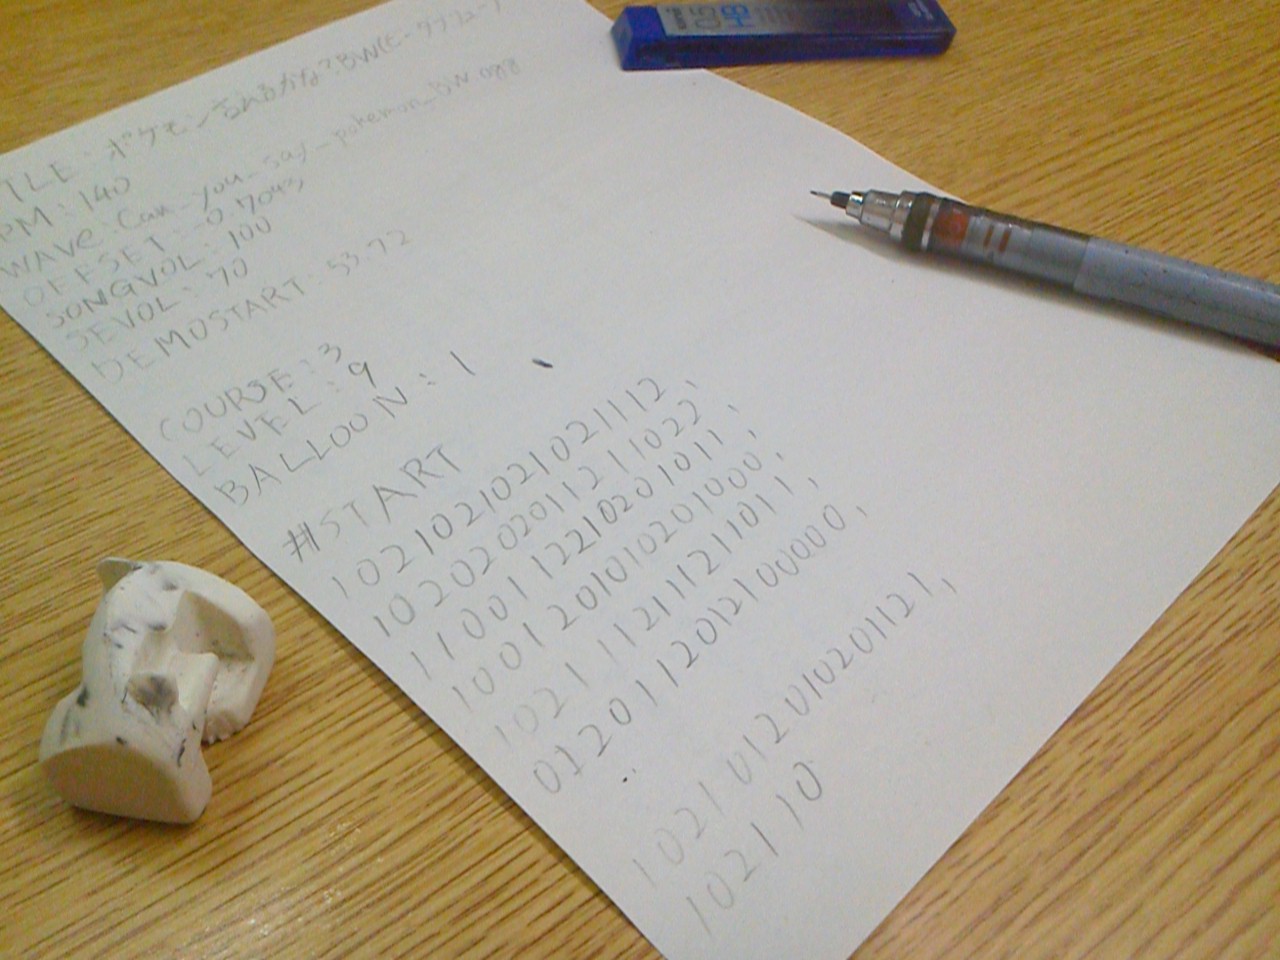 TLE: ポケモン言えるかな?BW
PM:140
WAVE:Can_you_say_pokemon_BW.ogg
OFFSET:-0.7043
SONGVOL:100
SEVOL:70
DEMOSTART:53.72
COURSE:3
LEVEL:9
BALLOON:1
#START
1021021021021112,
1020202011211022,
1100112210201011,
1001201010201000,
1021112111211011,
0120112012100000,
1021012010201121,
102110
uni
05
HB